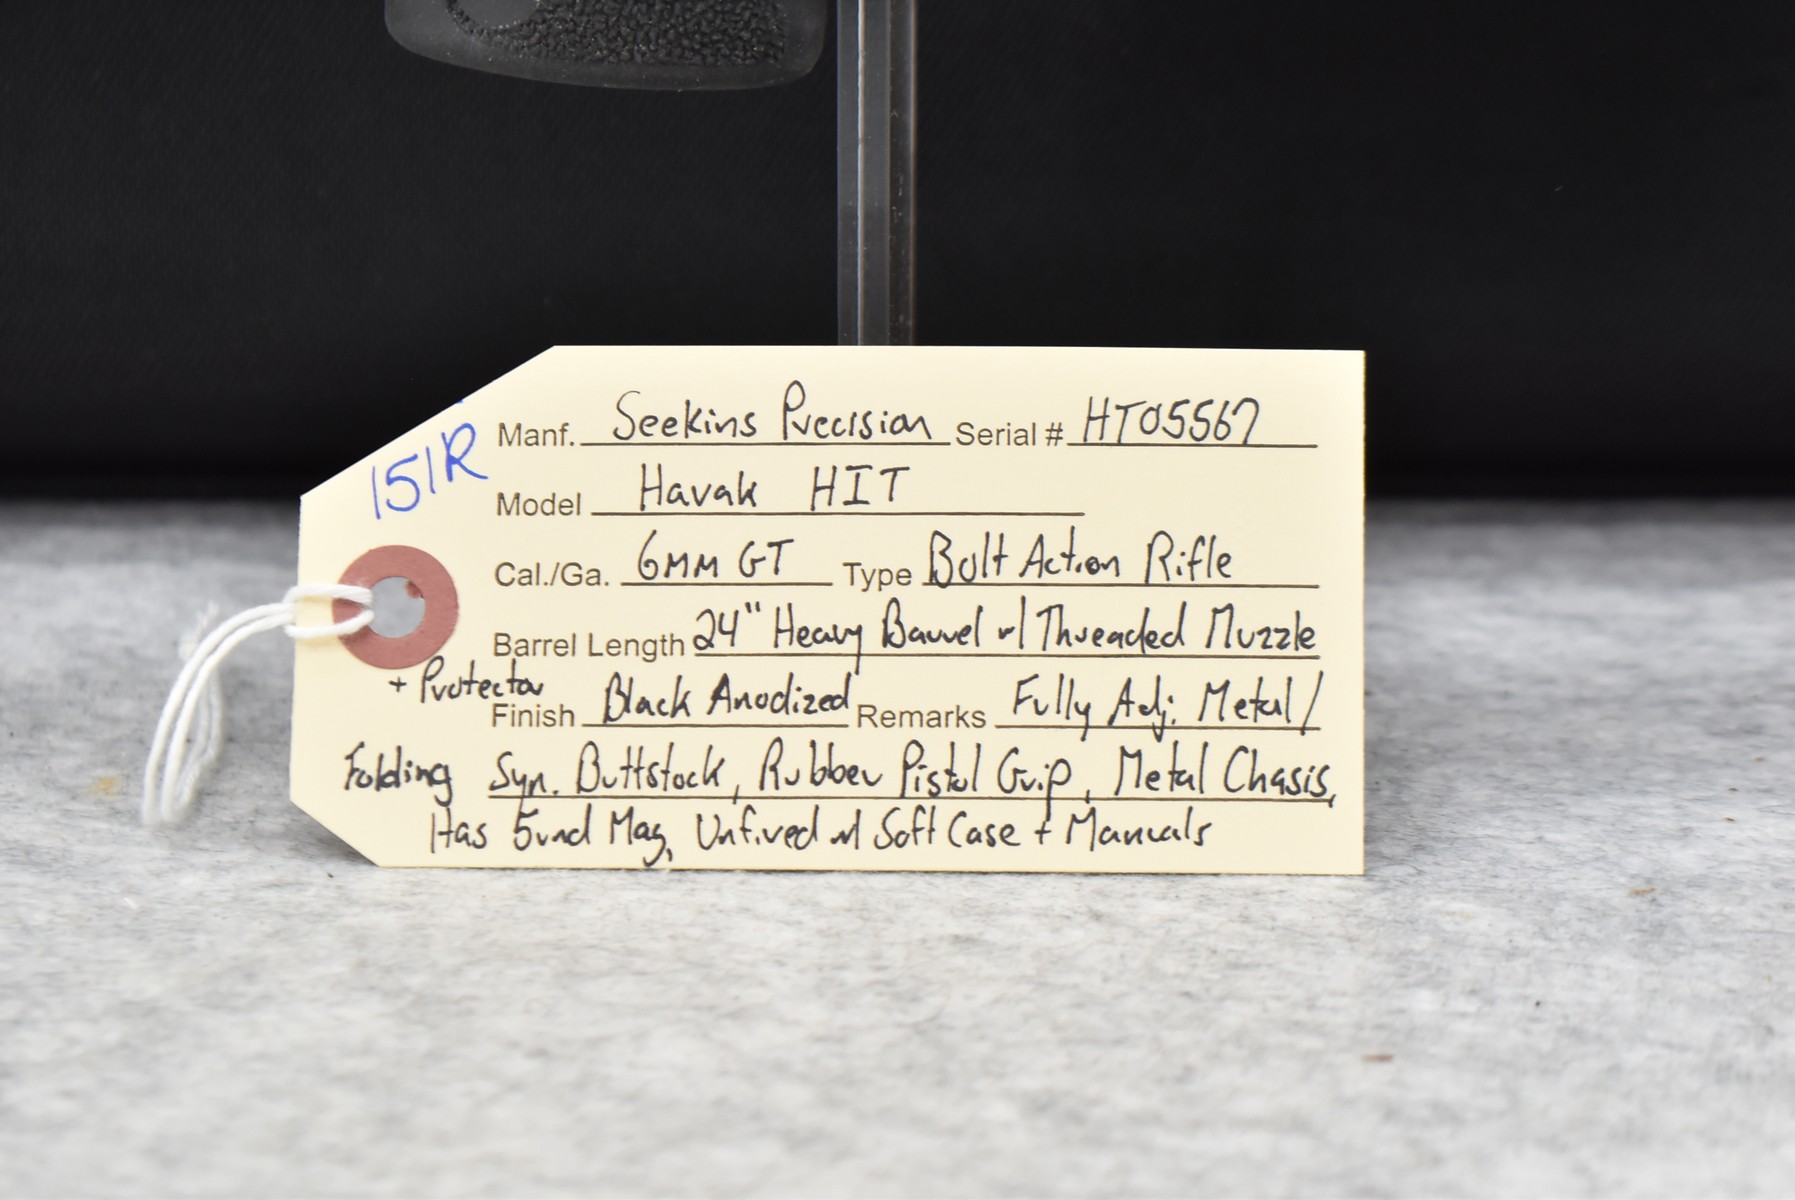 151R
Manf. Seekins Precision Serial # HT05567
Model Havak HIT
Cal./Ga. 6MM GT Type Bolt Action Rifle
Barrel Length 24" Heavy Barrel w/ Threaded Muzzle
+ Protector
Finish Black Anodized Remarks Fully Adj. Metal/
Folding Syn. Buttstock, Rubber Pistol Grip, Metal Chasis,
Has 5rnd Mag, Unfired w/ Soft Case + Manuals